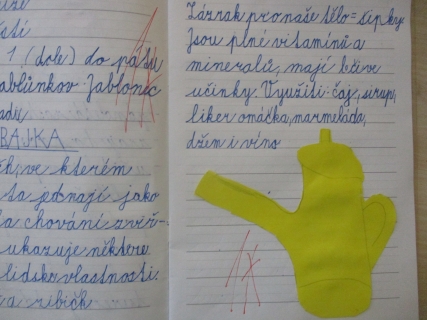 1 (dole) do pátú
BAJKA
ve kterém
jednají jako
chování zvíř-
ukazuje některé
lidské vlastnosti.
a ribičk
Zázrak pro naše tělo = šípky
Jsou plné vitamínů a
minerálů, mají léčivé
účinky. Využití: čaj, sirup,
likér omáčka, marmeláda,
džem i víno
1x